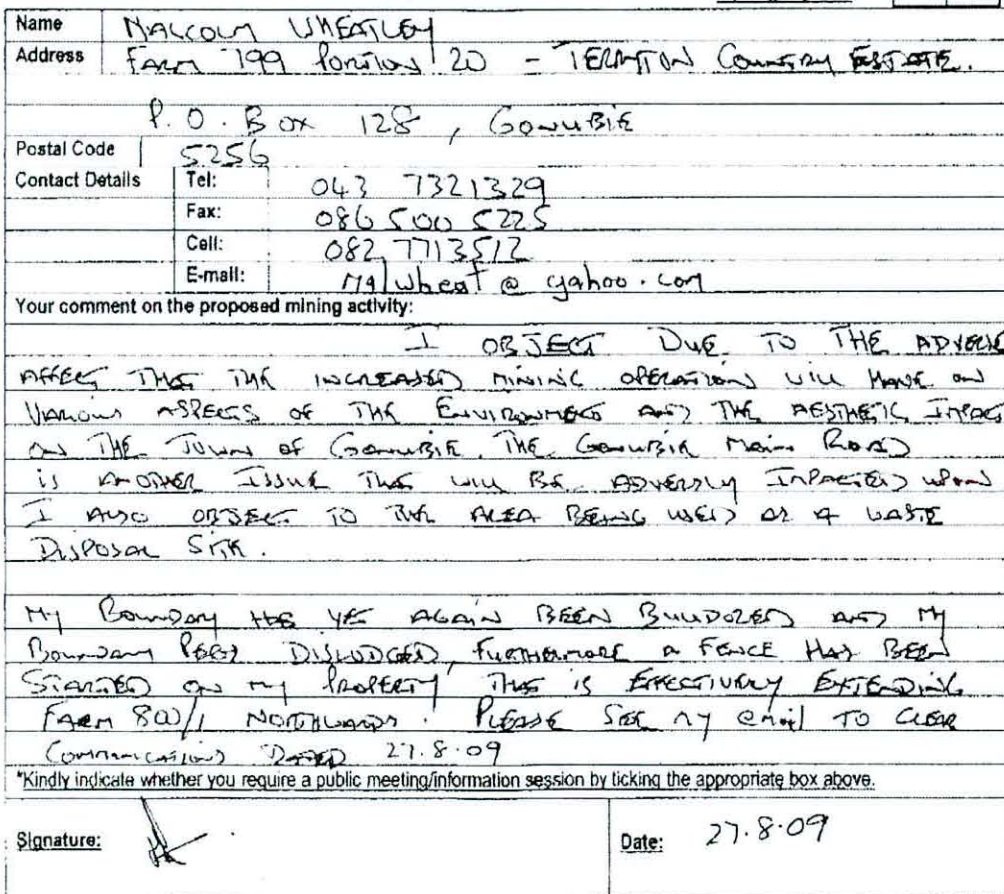 Name MALCOLM WHEATLEY
Address FARM 799 PORTION 20 - TERNTON COUNTRY ESTATE.
P.O. BOX 128, GONUBIE
Postal Code 5256
Contact Details Tel: 043 7321329
Fax: 086 500 5225
Cell: 082 7713512
E-mail: Malwheat @ yahoo.com
Your comment on the proposed mining activity:
I OBJECT DUE TO THE ADVERSE
AFFECT THAT THE INCREASED MINING OPERATION WILL HAVE ON
VARIOUS ASPECTS OF THE ENVIRONMENT AND THE AESTHETIC IMPACT
ON THE TOWN OF GONUBIE. THE GONUBIE MAIN ROAD
IS ANOTHER ISSUE THAT WILL BE ADVERSLY IMPACTED UPON
I ALSO OBJECT TO THE AREA BEING USED AS A WASTE
DISPOSAL SITE.
MY BOUNDARY HAS YET AGAIN BEEN BULLDOZED AND MY
BOUNDARY PEGS DISLODGED, FURTHERMORE A FENCE HAS BEEN
STARTED ON MY PROPERTY THAT IS EFFECTIVELY EXTENDING
FARM 800/1 NORTHLANDS. PLEASE SEE MY EMAIL TO CLEAR
COMMUNICATIONS DATED 27.8.09
*Kindly indicate whether you require a public meeting/information session by ticking the appropriate box above.
Signature: Date: 27.8.09